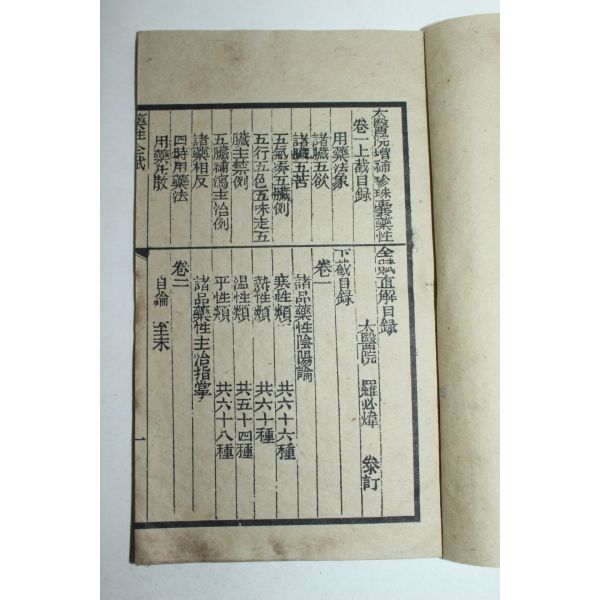 太醫院增補珍珠囊藥性全賦直解目錄
卷一上截目錄
用藥法象
諸臟五欲
諸臟五苦
五氣湊五臟例
五行五色五味走五
臟主禁例
五臟補瀉主治例
諸藥相反
四時用藥法
用藥凡散
下截目錄
太醫院 羅必煒 叅訂
卷一
諸品藥性陰陽論
寒性類 共六十六種
熱性類 共六十種
溫性類 共五十四種
平性類 共六十八種
諸品藥性主治指掌
卷二
自論 至末
藥性全賦
一